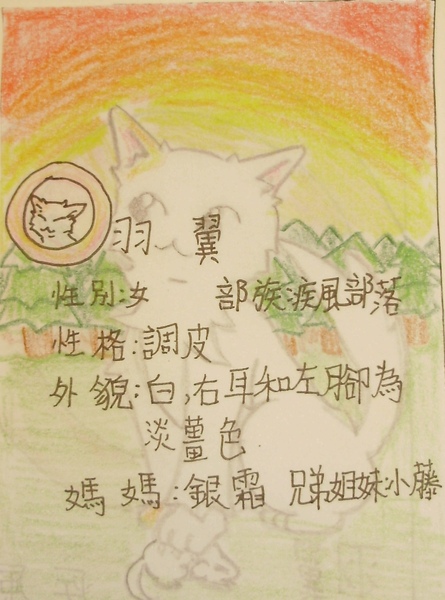 羽翼
性別:女 部族疾風部落
性格:調皮
外貌:白,右耳和左腳為
淡薑色
媽媽:銀霜 兄弟姐妹小藤